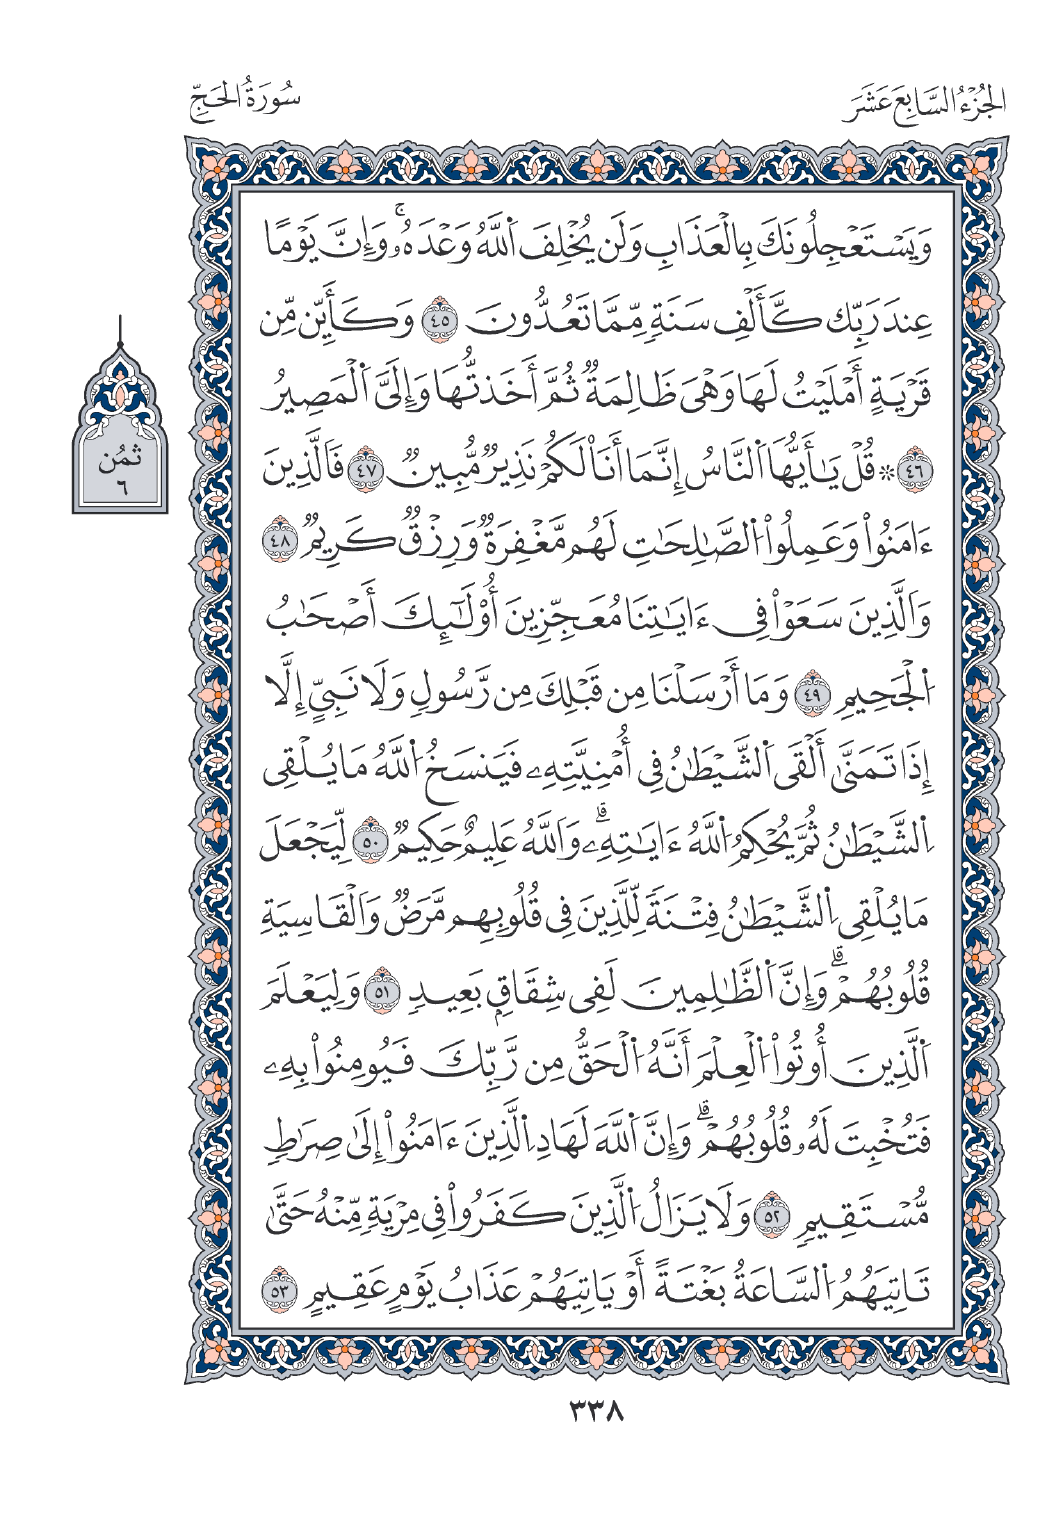 الجُزْءُ السَّابِعَ عَشَرَ
سُورَةُ الحَجِّ
وَيَسْتَعْجِلُونَكَ بِالْعَذَابِ وَلَن يُخْلِفَ اَ۬للَّهُ وَعْدَهُۥۚ وَإِنَّ يَوْمًا
عِندَ رَبِّك كَّأَلْفِ سَنَةٖ مِّمَّا تَعُدُّونَ ٤٥ وَكَأَيِّن مِّن
قَرْيَةٍ أَمْلَيْتُ لَهَا وَهْىَ ظَالِمَةٞ ثُمَّ أَخَذتُّهَا وَإِلَيَّ اَ۬لْمَصِيرُ
٤٦ ۞ قُلْ يَٰأَيُّهَا اَ۬لنَّاسُ إِنَّمَا أَنَا لَكُمْ نَذِيرٞ مُّبِينٞ ٤٧ فَالَّذِينَ
ءَامَنُواْ وَعَمِلُواْ اُ۬لصَّٰلِحَٰتِ لَهُم مَّغْفِرَةٞ وَرِزْقٞ كَرِيمٞ ٤٨
وَالَّذِينَ سَعَوْاْ فِى ءَايَٰتِنَا مُعَجِّزِينَ أُوْلَٰٓئِكَ أَصْحَٰبُ
اُ۬لْجَحِيمِ ٤٩ وَمَا أَرْسَلْنَا مِن قَبْلِكَ مِن رَّسُولٖ وَلَا نَبِيٍّ إِلَّا
إِذَا تَمَنَّىٰ أَلْقَى اَ۬لشَّيْطَٰنُ فِى أُمْنِيَّتِهِۦ فَيَنسَخُ اُ۬للَّهُ مَا يُلْقِى
اِ۬لشَّيْطَٰنُ ثُمَّ يُحْكِمُ اُ۬للَّهُ ءَايَٰتِهِۦۗ وَاللَّهُ عَلِيمٌ حَكِيمٞ ٥٠ لِّيَجْعَلَ
مَا يُلْقِى اِ۬لشَّيْطَٰنُ فِتْنَةٗ لِّلَّذِينَ فِى قُلُوبِهِم مَّرَضٞ وَالْقَاسِيَةِ
قُلُوبُهُمْۗ وَإِنَّ اَ۬لظَّٰلِمِينَ لَفِى شِقَاقِۢ بَعِيدٖ ٥١ وَلِيَعْلَمَ
اَ۬لَّذِينَ أُوتُواْ اُ۬لْعِلْمَ أَنَّهُ اُ۬لْحَقُّ مِن رَّبِّكَ فَيُومِنُواْ بِهِۦ
فَتُخْبِتَ لَهُۥ قُلُوبُهُمْۗ وَإِنَّ اَ۬للَّهَ لَهَادِ اِ۬لَّذِينَ ءَامَنُواْ إِلَىٰ صِرَٰطٖ
مُّسْتَقِيمٖ ٥٢ وَلَا يَزَالُ اُ۬لَّذِينَ كَفَرُواْ فِى مِرْيَةٖ مِّنْهُ حَتَّىٰ
تَاتِيَهُمُ اُ۬لسَّاعَةُ بَغْتَةً أَوْ يَاتِيَهُمْ عَذَابُ يَوْمٍ عَقِيمٍ ٥٣
ثُمُن
٦
٣٣٨